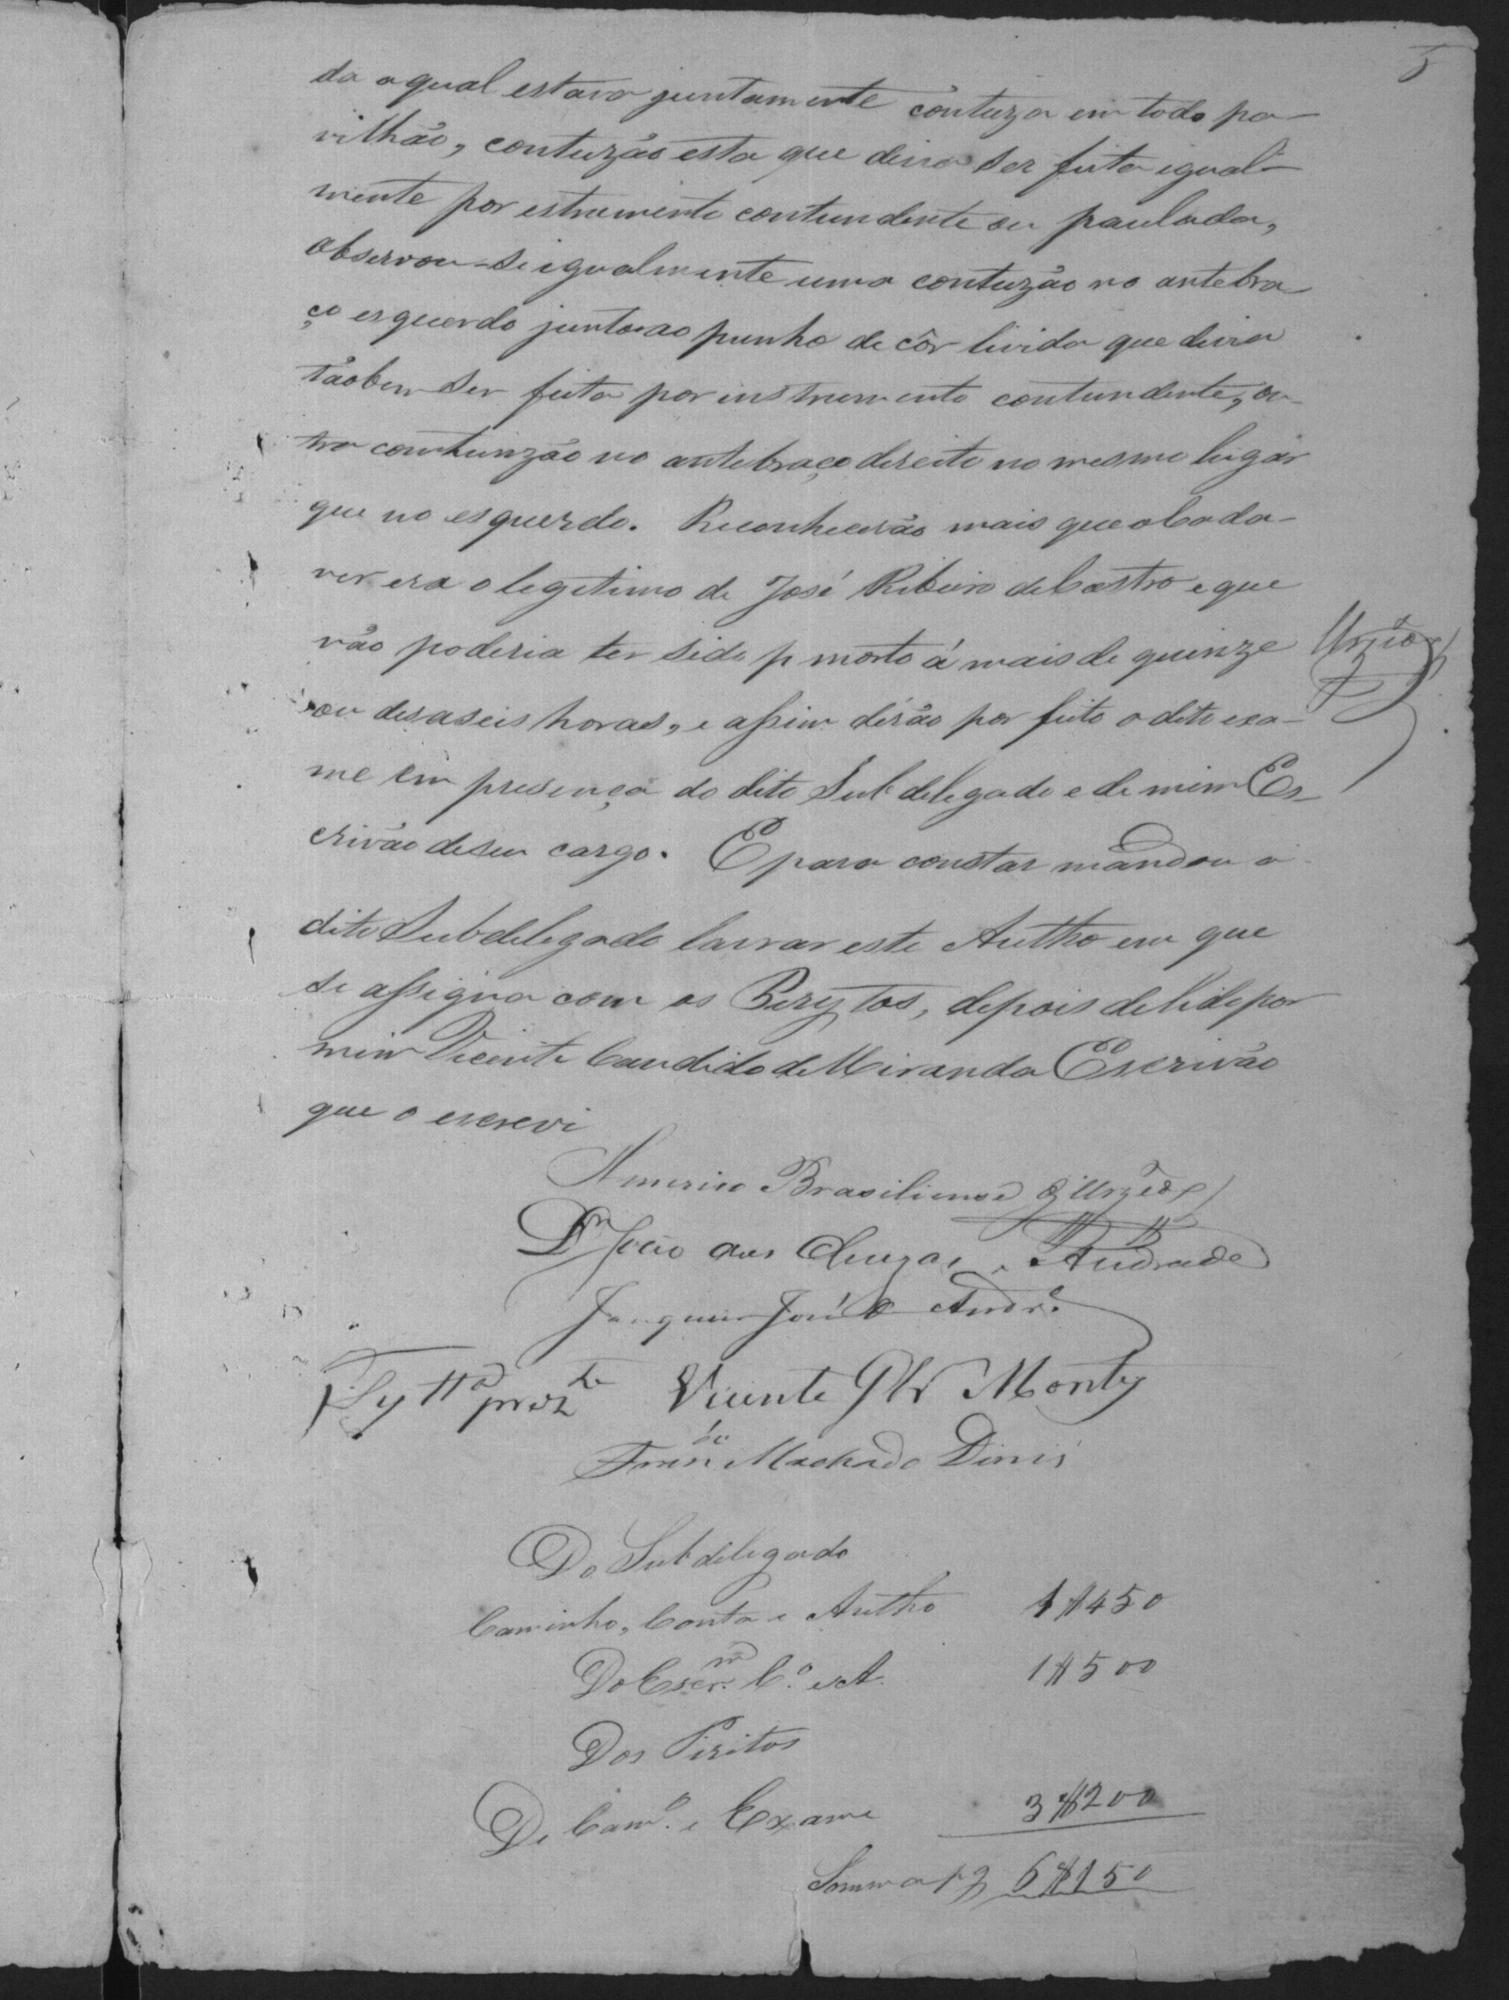 5
da a qual estava juntamente contuza em todo pa-
vilhão, contuzão esta que divia ser feita igual-
mente por estrumento contundente ou paulada,
observou-se igualmente uma contuzão no antebra-
ço esquerdo junto ao punho de côr livida que divia
tãobem ser feita por instrumento contundente, ou-
tra contunzão no antebraço direito no mesmo lugár
que no esquerdo. Reconhecerão mais que o Cada-
ver era o legitimo de José Ribeiro de Castro e que
não poderia ter sido p morto á mais de quinze
Urzêda
ou desaseis horas, e assim derão por feito o dito exa-
me em presença do dito Subdelegado e de mim Es-
crivão de seu cargo. E para constar mandou o
dito Subdelegado lavrar este Autho em que
se assigna com os Perytos, depois de lido por
mim Vicente Candido de Miranda Escrivão
que o escrevi
Americo Brasiliense d'Urzêda
João das Chagas Andrade
Joaquim José Andr.e
Vicente Montes
Fran.co Machado Dinis
Do Subdelegado
Caminho, Conta e Autho 1$450
Do Escr.m C.o e A. 1$500
Dos Piritos
De Cam.o e Exame 3$200
Somma 6$150